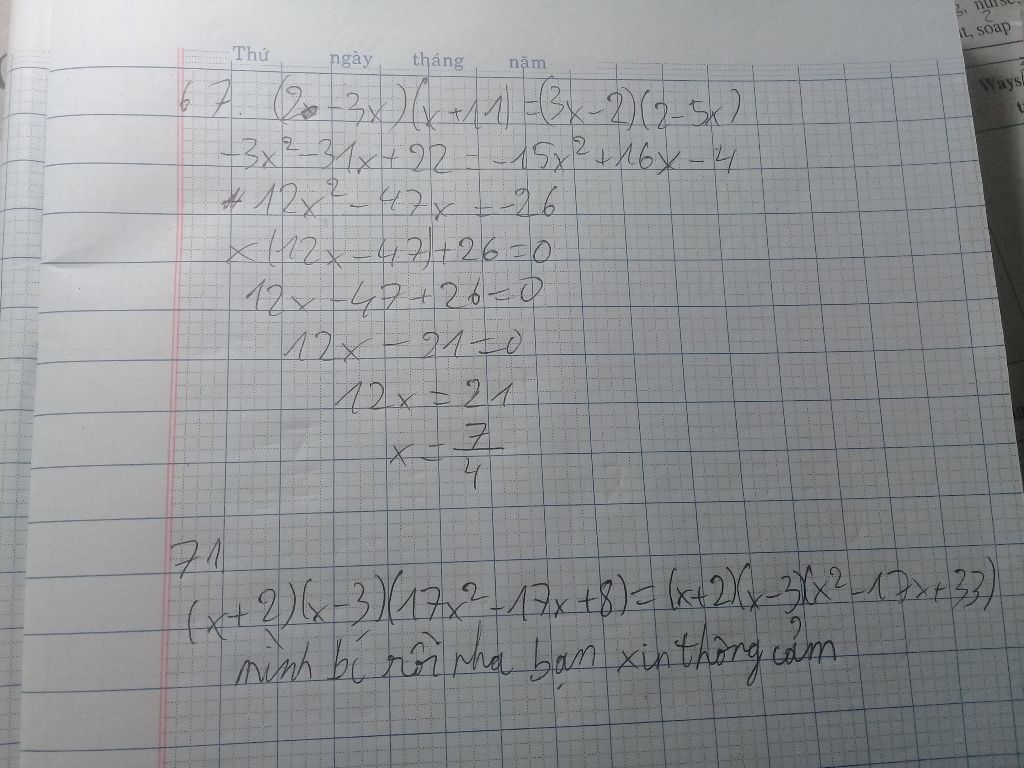 g, nurse,
t, soap
Thứ ngày tháng năm
Ways
67. (2 - 3x)(x+11) = (3x-2)(2-5x)
-3x² - 31x + 22 = -15x² + 16x - 4
12x² - 47x = -26
x(12x - 47) + 26 = 0
12x - 47 + 26 = 0
12x - 21 = 0
12x = 21
x = 7/4
71
(x+2)(x-3)(17x² - 17x + 8) = (x+2)(x-3)(x² - 17x + 33)
mình bí rồi nha bạn xin thông cảm